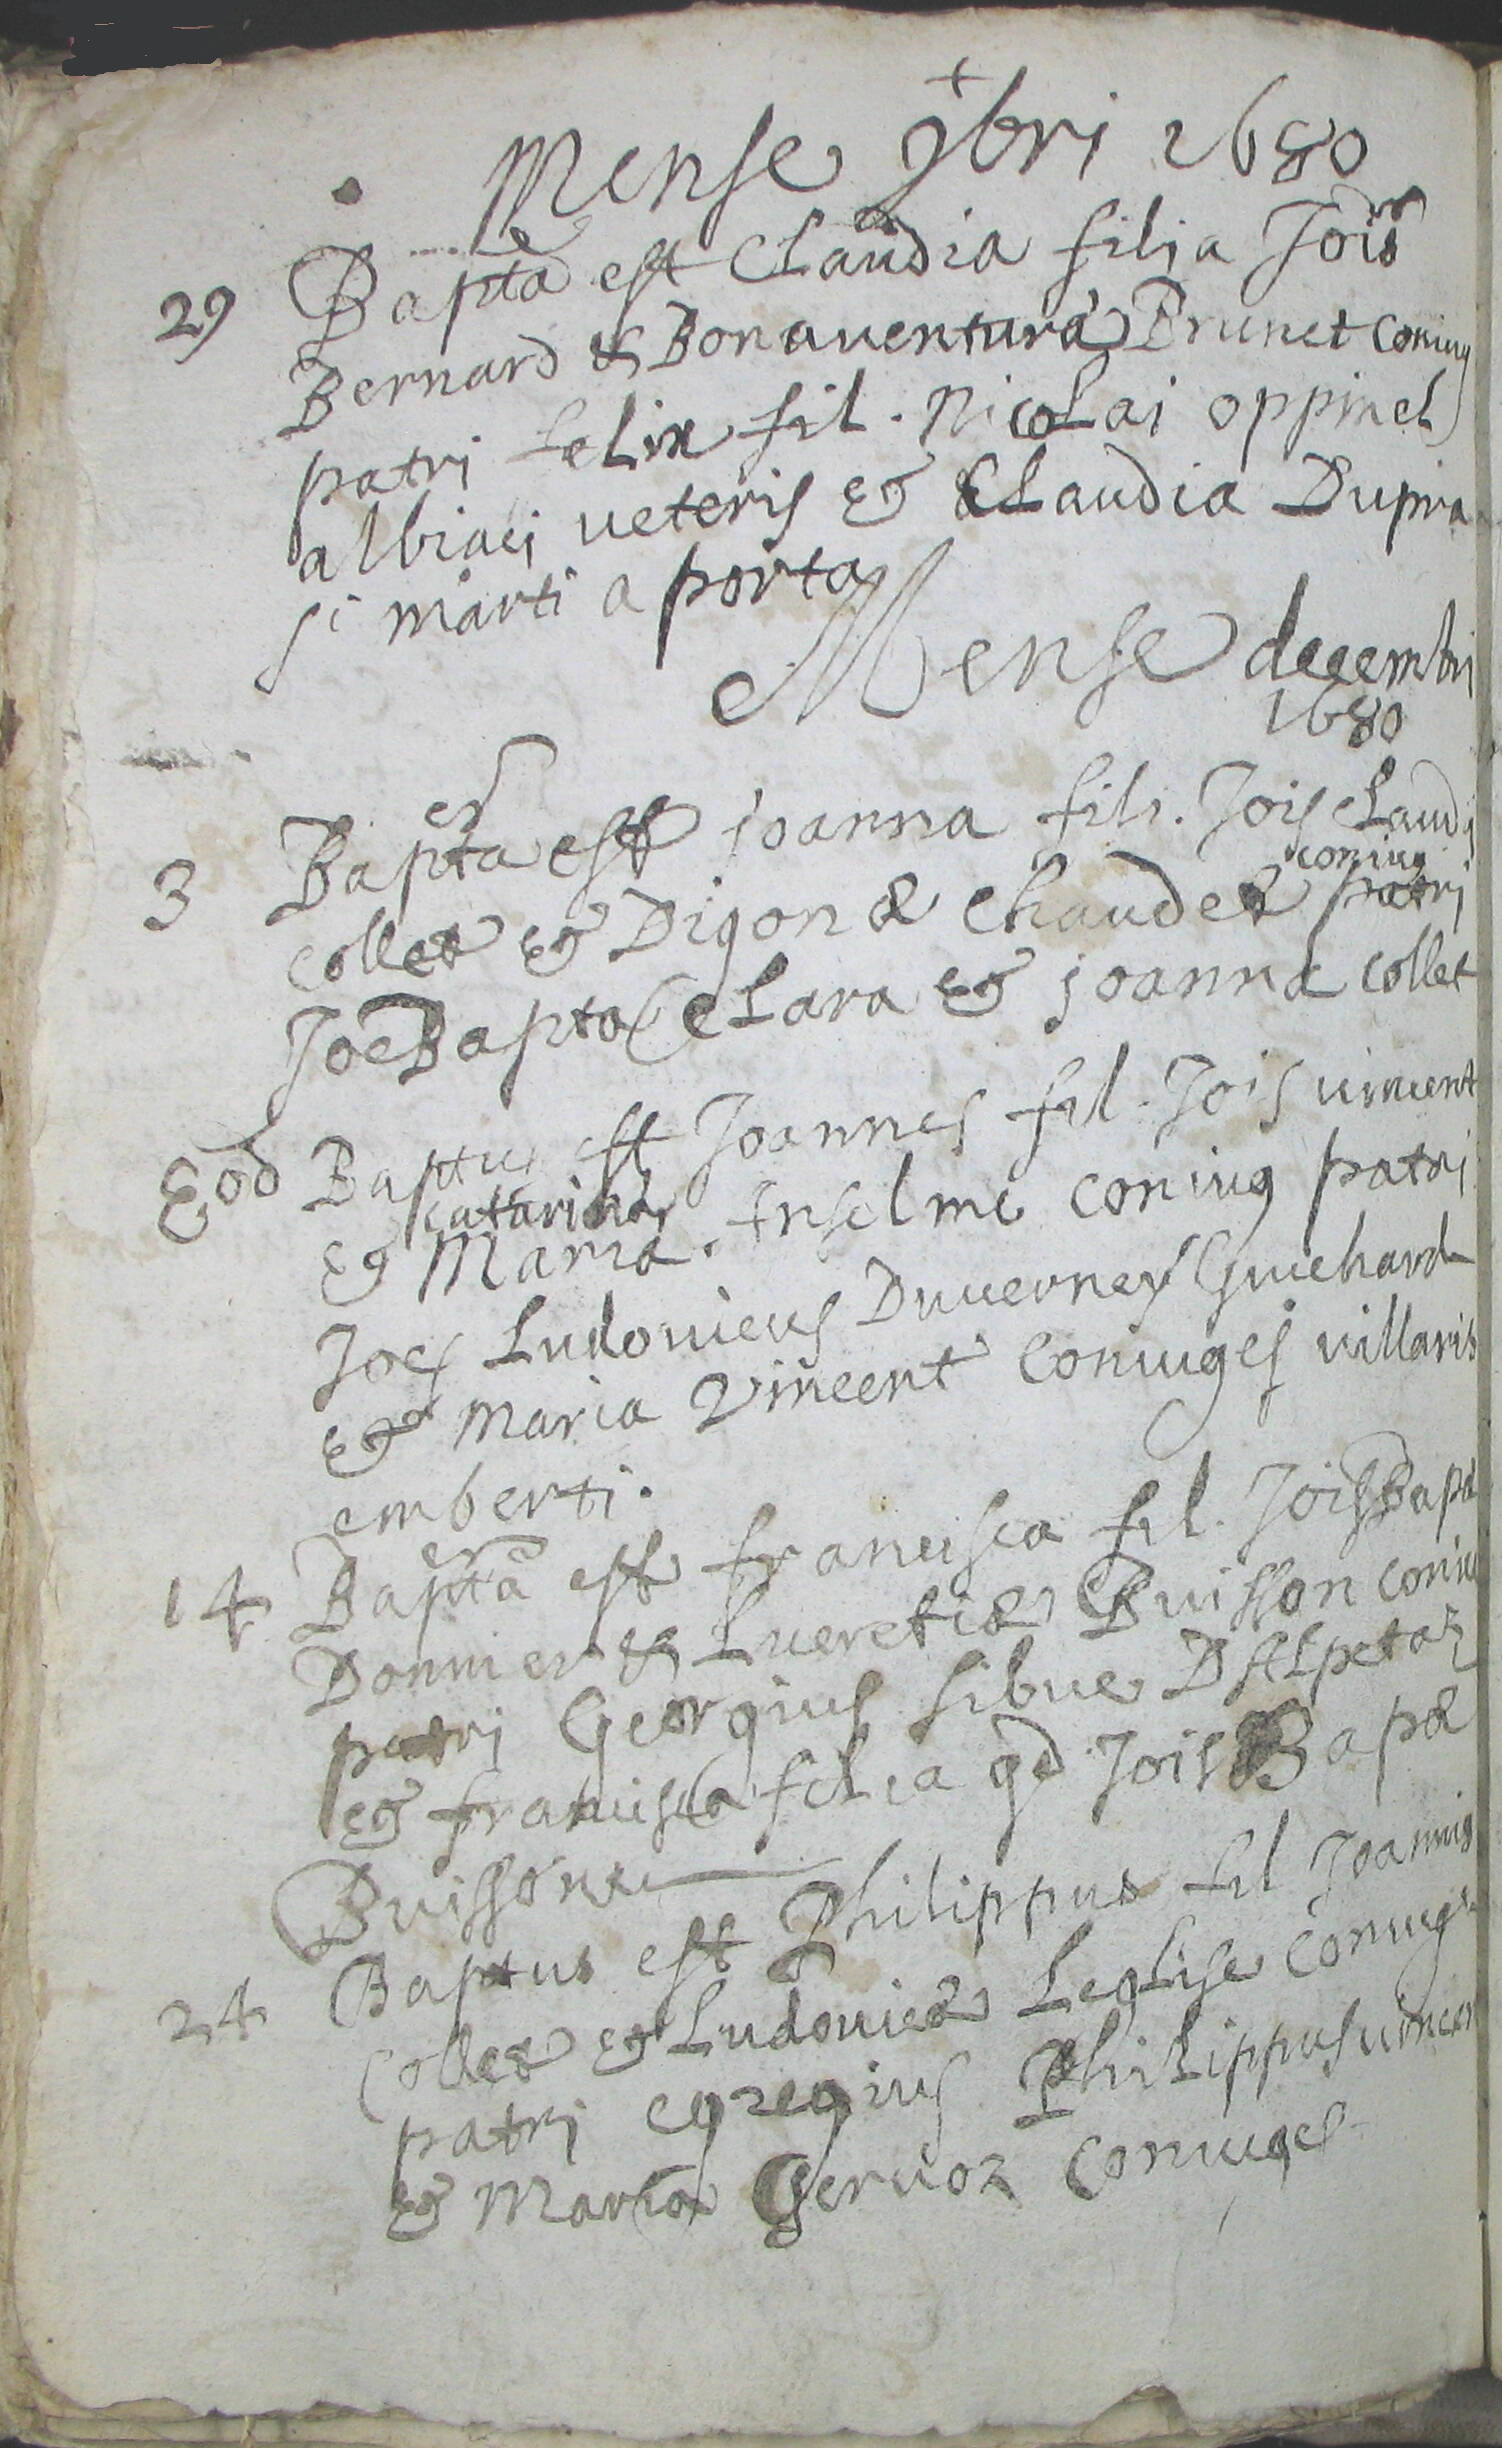 Mense 9bri 1680
29 Bapta est Claudia filia Jois
Bernard & Bonauentura Brunet coniug
patri felix fil. Nicolai oppinel
albiaci ueteris & Claudia Dupra
si marti a porta
Mense decembri
1680
3 Bapta est joanna fil. Jois Claudi
collet & Digonæ Chaudet coniug patri
Joes Bapta Clara & joanna collet
Eod Baptus est Joannes fil. Jois uincent
& Maria catarina Anselme coniug patri
Joes Ludouicus Duuerney Guichard
& Maria Vincent coniuges uillaris
emberti.
14 Bapta est francisca fil. Jois Bapæ
Donnier & Lucretiæ Buisson coniu
patri Georgius sibue D Alpetaz
& francisca filia qd Jois Bapæ
Buissone
24 Baptus est Philippus fil Joannis
Collet & Ludouicæ Leglise coniug
patri egregius Philippus uincen
& Maria Geruoz coniuges